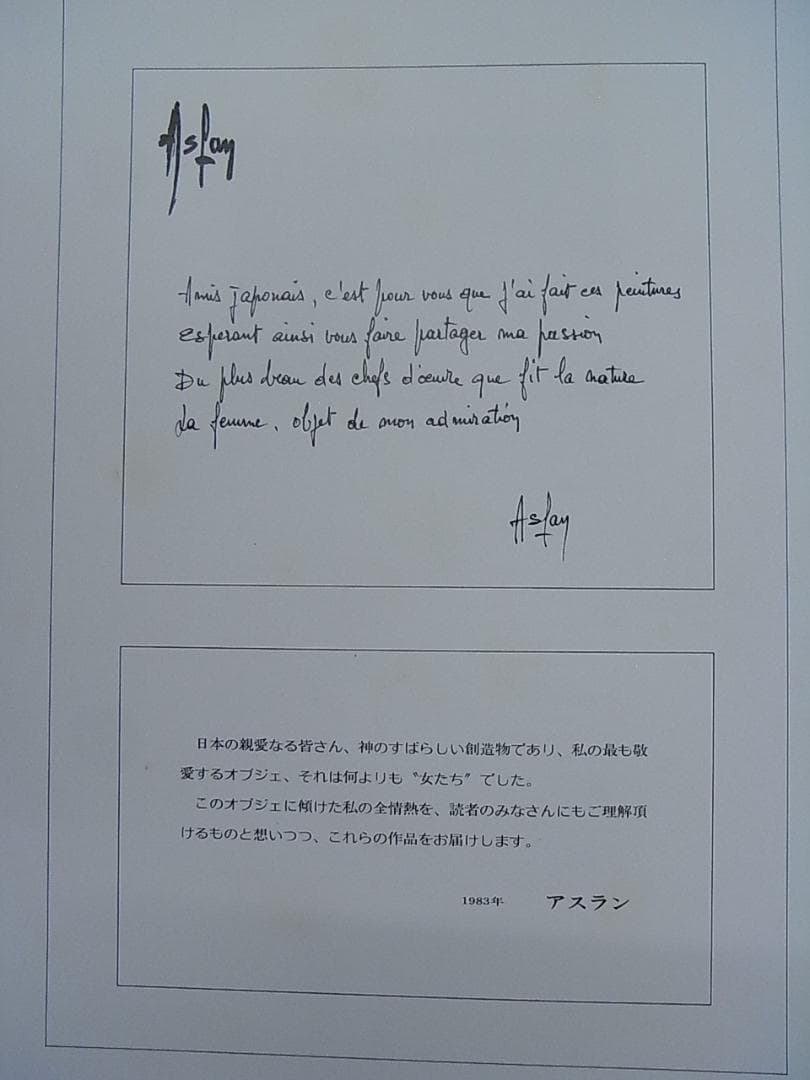 Aslan
Amis japonais, c'est pour vous que j'ai fait ces peintures
esperant ainsi vous faire partager ma passion
Du plus beau des chefs d'œuvre que fit la nature
La femme, objet de mon admiration
Aslan
日本の親愛なる皆さん、神のすばらしい創造物であり、私の最も敬
愛するオブジェ、それは何よりも〝女たち〞でした。
このオブジェに傾けた私の全情熱を、読者のみなさんにもご理解頂
けるものと想いつつ、これらの作品をお届けします。
1983年 アスラン